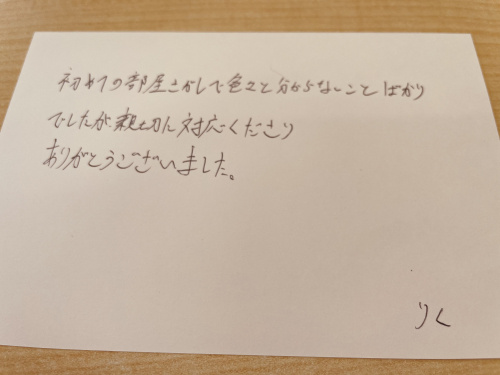 初めての部屋さがしで色々と分からないことばかり
でしたが、親切に対応くださり
ありがとうございました。
りく